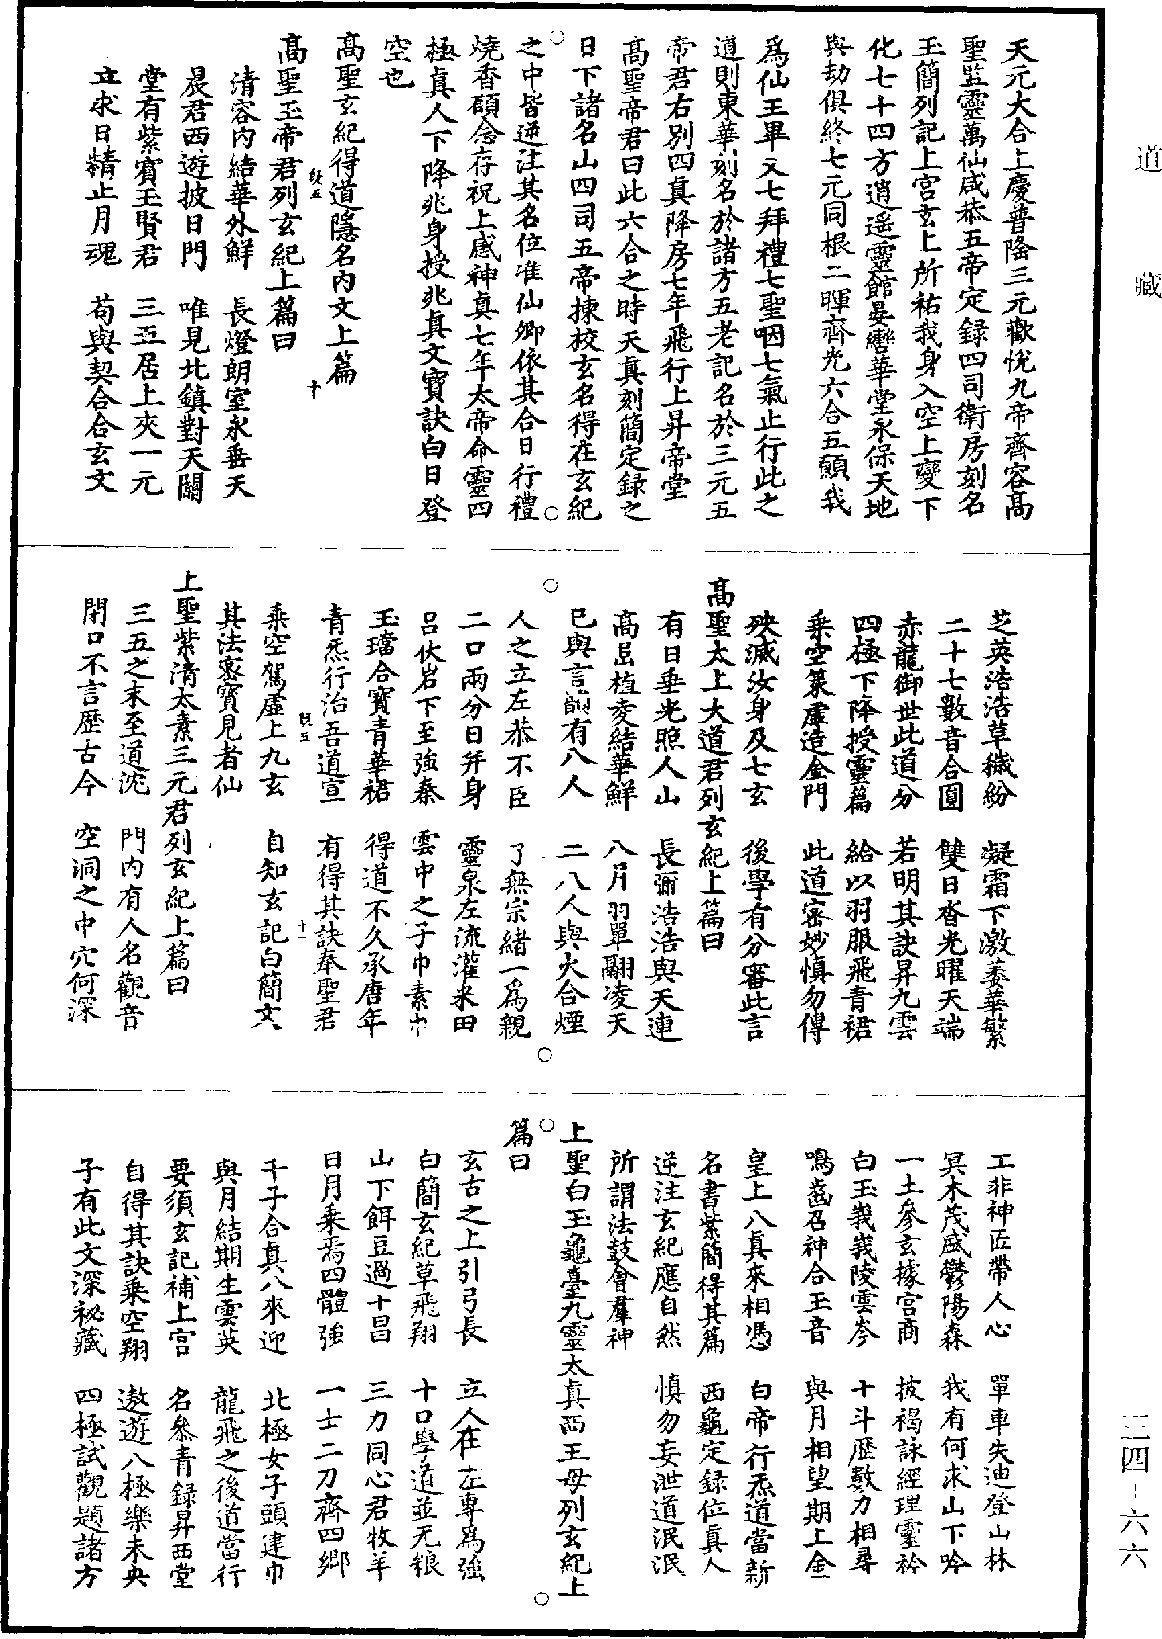 道藏
天元大合上慶普隆三元歡悅九帝齊容高
聖監靈萬仙咸恭五帝定録四司衛房刻名
玉簡列記上宮玄上所祐我身入空上變下
化七十四方逍遙靈館晏轡華堂永保天地
與劫俱終七元同根二暉齊光六合五願我
爲仙王畢又七拜禮七聖咽七氣止行此之
道則東華刻名於諸方五老記名於三元五
帝君右別四真降房七年飛行上昇帝堂
高聖帝君曰此六合之時天真刻簡定録之
日下諸名山四司五帝揀校玄名得在玄紀
之中皆逆注其名位准仙卿依其合日行禮
燒香願念存祝上感神真七年太帝命靈四
極真人下降兆身授兆真文寶訣白日登
空也
高聖玄紀得道隱名內文上篇
高聖玉帝君列玄紀上篇曰
清容內結華外鮮　長燈朗室永垂天
晨君西遊披日門　唯見北鎮對天關
堂有紫賓王賢君　三三居上夾一元
立求日精止月魂　苟與契合合玄文
芝英浩浩草纖紛　凝霜下激萎華繁
二十七數音合圓　雙日杳光曜天端
赤龍御世此道分　若明其訣昇九雲
四極下降授靈篇　給以羽服飛青裙
乘空策虛造金門　此道審妙慎勿傳
殃滅汝身及七玄　後學有分審此言
高聖太上大道君列玄紀上篇曰
有日垂光照人山　長彌浩浩與天連
高岳植夌結華鮮　八月羽單翮凌天
已與言的有八人　二八人與火合煙
人之立左恭不臣　了無宗緒一爲親
二口兩分日并身　靈泉左流灌來田
呂伏岩下至強秦　雲中之子巾素巾
玉璫合寶青華裙　得道不久承唐年
青炁行治吾道宣　有得其訣奉聖君
乘空駕虛上九玄　自知玄記白簡文
其法密寶見者仙
上聖紫清太素三元君列玄紀上篇曰
三五之末至道沈　門內有人名觀音
閉口不言歷古今　空洞之中穴何深
工非神匠帶人心　單車失迪登山林
冥木茂盛鬱陽森　我有何求山下吟
一土參玄據宮商　披褐詠經理靈衿
白玉峩峩陵雲岑　十斗歷數力相尋
鳴鼓召神合玉音　與月相望期上金
皇上八真來相馮　白帝行炁道當新
名書紫簡得其篇　西龜定録位真人
逆注玄紀應自然　慎勿妄泄道泯泯
所謂法鼓會羣神
上聖白玉龜臺九靈太真西王母列玄紀上
篇曰
玄古之上引弓長　立人在左專爲強
白簡玄紀草飛翔　十口學道並无粮
山下餌豆過十昌　三力同心君牧羊
日月乘焉四體強　一士二刀齊四鄉
千子合真八來迎　北極女子頭建巾
與月結期生雲英　龍飛之後道當行
要須玄記補上宮　名參青録昇西堂
自得其訣乘空翔　遨遊八極樂未央
子有此文深祕藏　四極試觀題諸方
三四-六六